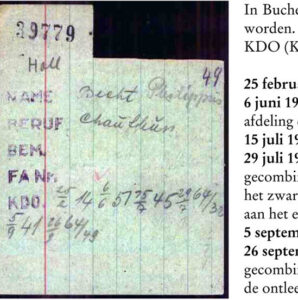 39779
Holl
49
NAME Becht Philippus
BERUF. Chauffeur
BEM.
FA Nr.
KDO. 25/2 14 6/6 57 25/7 45 29/7 64/
5/9 41 26/9 64/49
In Buche
worden.
KDO (K
25 februa
6 juni 19
afdeling
15 juli 19
29 juli 19
gecombin
het zwar
aan het e
5 septem
26 septen
gecombin
de ontlee